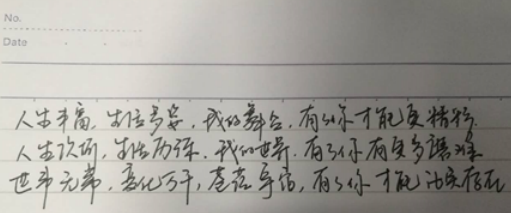 No.
Date
人生丰富,生活多姿,我的舞台,有了你才能更精彩.
人生认所,生活历练,我的世界,有了你有更多
世事无常,变化万千,有了你才能